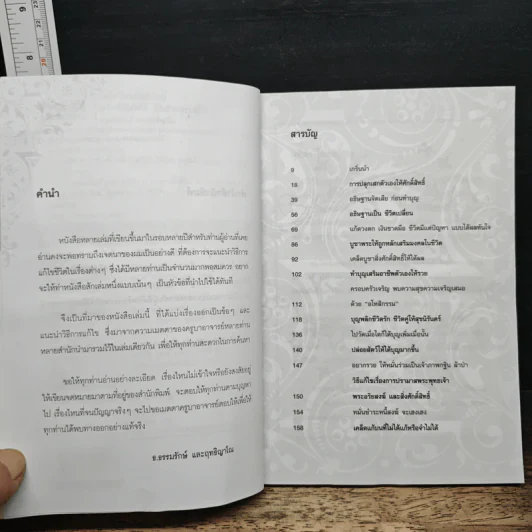 คำนำ
หนังสือหลายเล่มที่เขียนขึ้นมาในรอบหลายปีสำหรับท่านผู้อ่านที่เคย
อ่านคงจะพอทราบถึงเจตนาของผมเป็นอย่างดี ที่ต้องการจะแนะนำวิธีการ
แก้ไขชีวิตในเรื่องต่างๆ ซึ่งได้มีหลายท่านเป็นจำนวนมากพอสมควร อยาก
จะให้ทำหนังสือสักเล่มหนึ่งแบบเน้นๆ เป็นหัวข้อที่นำไปใช้ได้ทันที
จึงเป็นที่มาของหนังสือเล่มนี้ ที่ได้แบ่งเรื่องออกเป็นข้อๆ และ
แนะนำวิธีการแก้ไข ซึ่งมาจากความเมตตาของครูบาอาจารย์หลายท่าน
หลายสำนักนำมารวมไว้ในเล่มเดียวกัน เพื่อให้ทุกท่านสะดวกในการค้นหา
ขอให้ทุกท่านอ่านอย่างละเอียด เรื่องไหนไม่เข้าใจหรือยังสงสัยอยู่
ให้เขียนจดหมายมาตามที่อยู่ของสำนักพิมพ์ จะตอบให้ทุกท่านตามบุญพา
ไป เรื่องไหนที่จนปัญญาจริงๆ จะไปขอเมตตาครูบาอาจารย์ตอบให้เพื่อให้
ทุกท่านได้พบทางออกอย่างแท้จริง
ธ.ธรรมรักษ์ และฤทธิญาโณ
สารบัญ
9 เกริ่นนำ
18 การปลุกเสกตัวเองให้ศักดิ์สิทธิ์
39 อธิษฐานจิตเสีย ก่อนทำบุญ
56 อธิษฐานเป็น ชีวิตเปลี่ยน
69 แก้ดวงตก เงินขาดมือ ชีวิตมีแต่ปัญหา แบบได้ผลทันใจ
86 บูชาพระให้ถูกหลักเสริมมงคลในชีวิต
92 เคล็ดบูชาสิ่งศักดิ์สิทธิ์ให้ได้ผล
102 ทำบุญเสริมอาชีพตัวเองให้รวย
ครอบครัวเจริญ พบความสุขความเจริญเสมอ
112 ด้วย "อโหสิกรรม"
118 บุญพลิกชีวิตรัก ชีวิตคู่ให้สุขนิรันดร์
136 ไปวัดเมื่อใดก็ได้บุญเพิ่มเมื่อนั้น
140 ปล่อยสัตว์ให้ได้บุญมากขึ้น
147 อยากรวย ให้หมั่นร่วมเป็นเจ้าภาพกฐิน ผ้าป่า
วิธีแก้ไขเรื่องการปรามาสพระพุทธเจ้า
150 พระอริยสงฆ์ และสิ่งศักดิ์สิทธิ์
154 หมั่นชำระหนี้สงฆ์ จะเฮงเฮง
158 เคล็ดแก้บนที่ไม่ได้แก้หรือจำไม่ได้